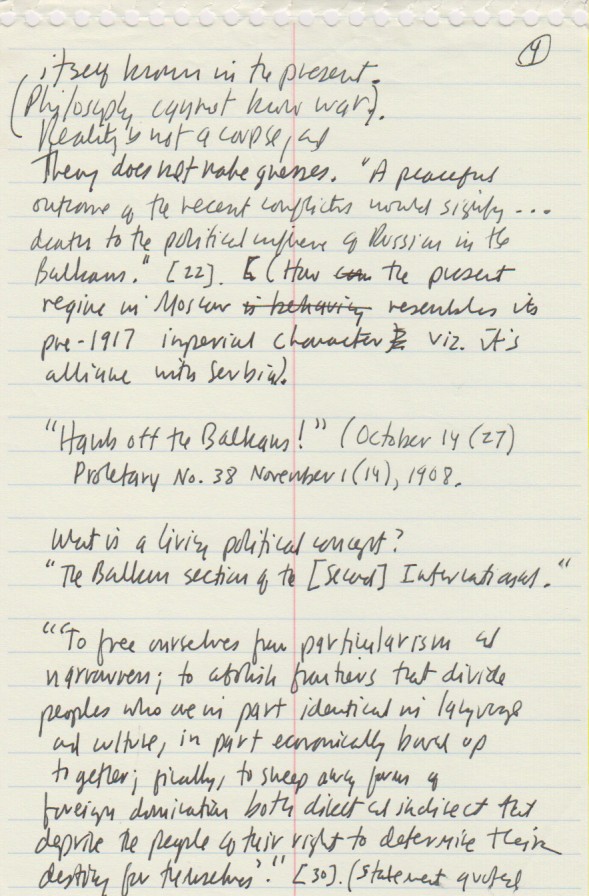 4
itself known in the present.
(Philosophy cannot know war).
Reality is not a corpse, and
Theory does not make guesses. "A peaceful
outcome of the recent conflicts would signify...
death to the political influence of Russian in the
Balkans." [22]. (How the present
regime in Moscow is behaving resembles its
pre-1917 imperial character viz. it's
alliance with Serbia).
"Hands off the Balkans!" (October 14 (27)
Proletary No. 38 November 1 (14), 1908.
What is a living political concept?
"The Balkan section of the [Second] International."
""To free ourselves from particularism and
narrowness; to abolish frontiers that divide
peoples who are in part identical in language
and culture, in part economically bound up
together; finally, to sweep away forms of
foreign domination both direct and indirect that
deprive the people of their right to determine their
destiny for themselves'." [30]. (Statement quoted